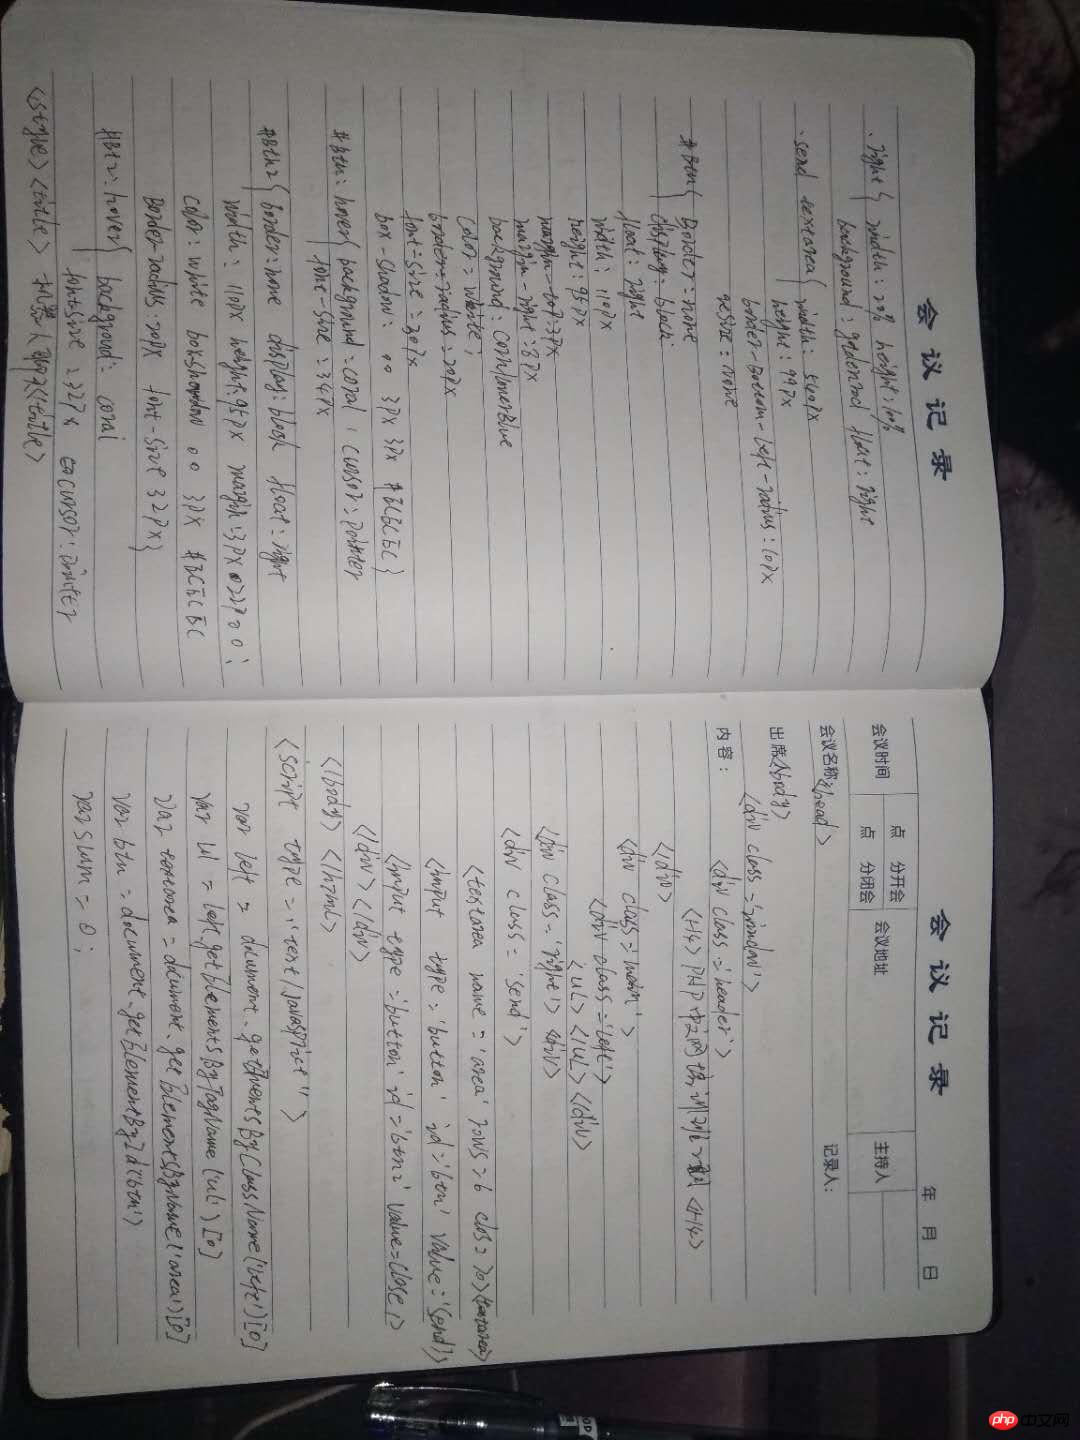 会议记录
.right{ width:20% height:100%
background: goldenrod float:right
.send textarea{ width:560px
height:99px
border-bottom-left-radius:10px
resize:none
#btn{ border:none
display:block:
float:right
width:110px
height:95px
margin-top:3px
margin-right:8px
background:cornflowerblue
color=white;
border-radius:20px
font-size:30px
box-shadow: 0 0 3px 3px #ECECEC}
#btn:hover{ background:coral; cursor:pointer
font-size:34px
#btn2{ border:none display:block float:right
width:110px height:95px margin:3px
color:white box-shadow 0 0 3px #ECECEC
border-radius:20px font-size 32px}
#btn2:hover{ background: coral
font-size:32px cursor:pointer
<style> <title>
会议记录 年 月 日
会议时间 点 分开会 点 分闭会 会议地址 主持人
会议名称 head> 记录人:
出席人 body>
<div class='window'>
内容:
<div class='header'>
<H4> PHP中文网
</div>
<div class='main'>
<div class='left'>
<ul></ul></div>
<div class='right'> <div>
<div class='send'>
<textarea name='area' rows=6
<input type='button' id='btn' value='send'>
<input type='button' id='btn2' value=close'>
<div></div>
</body> </html>
<script type="text/javascript">
var left = document.getElementsByClassName('left')[0]
var ul = left.getElementsByTagName('ul')[0]
var textarea = document.getElementsByName('area')[0]
var btn = document.getElementById('btn')
var sum = 0;
php中文网